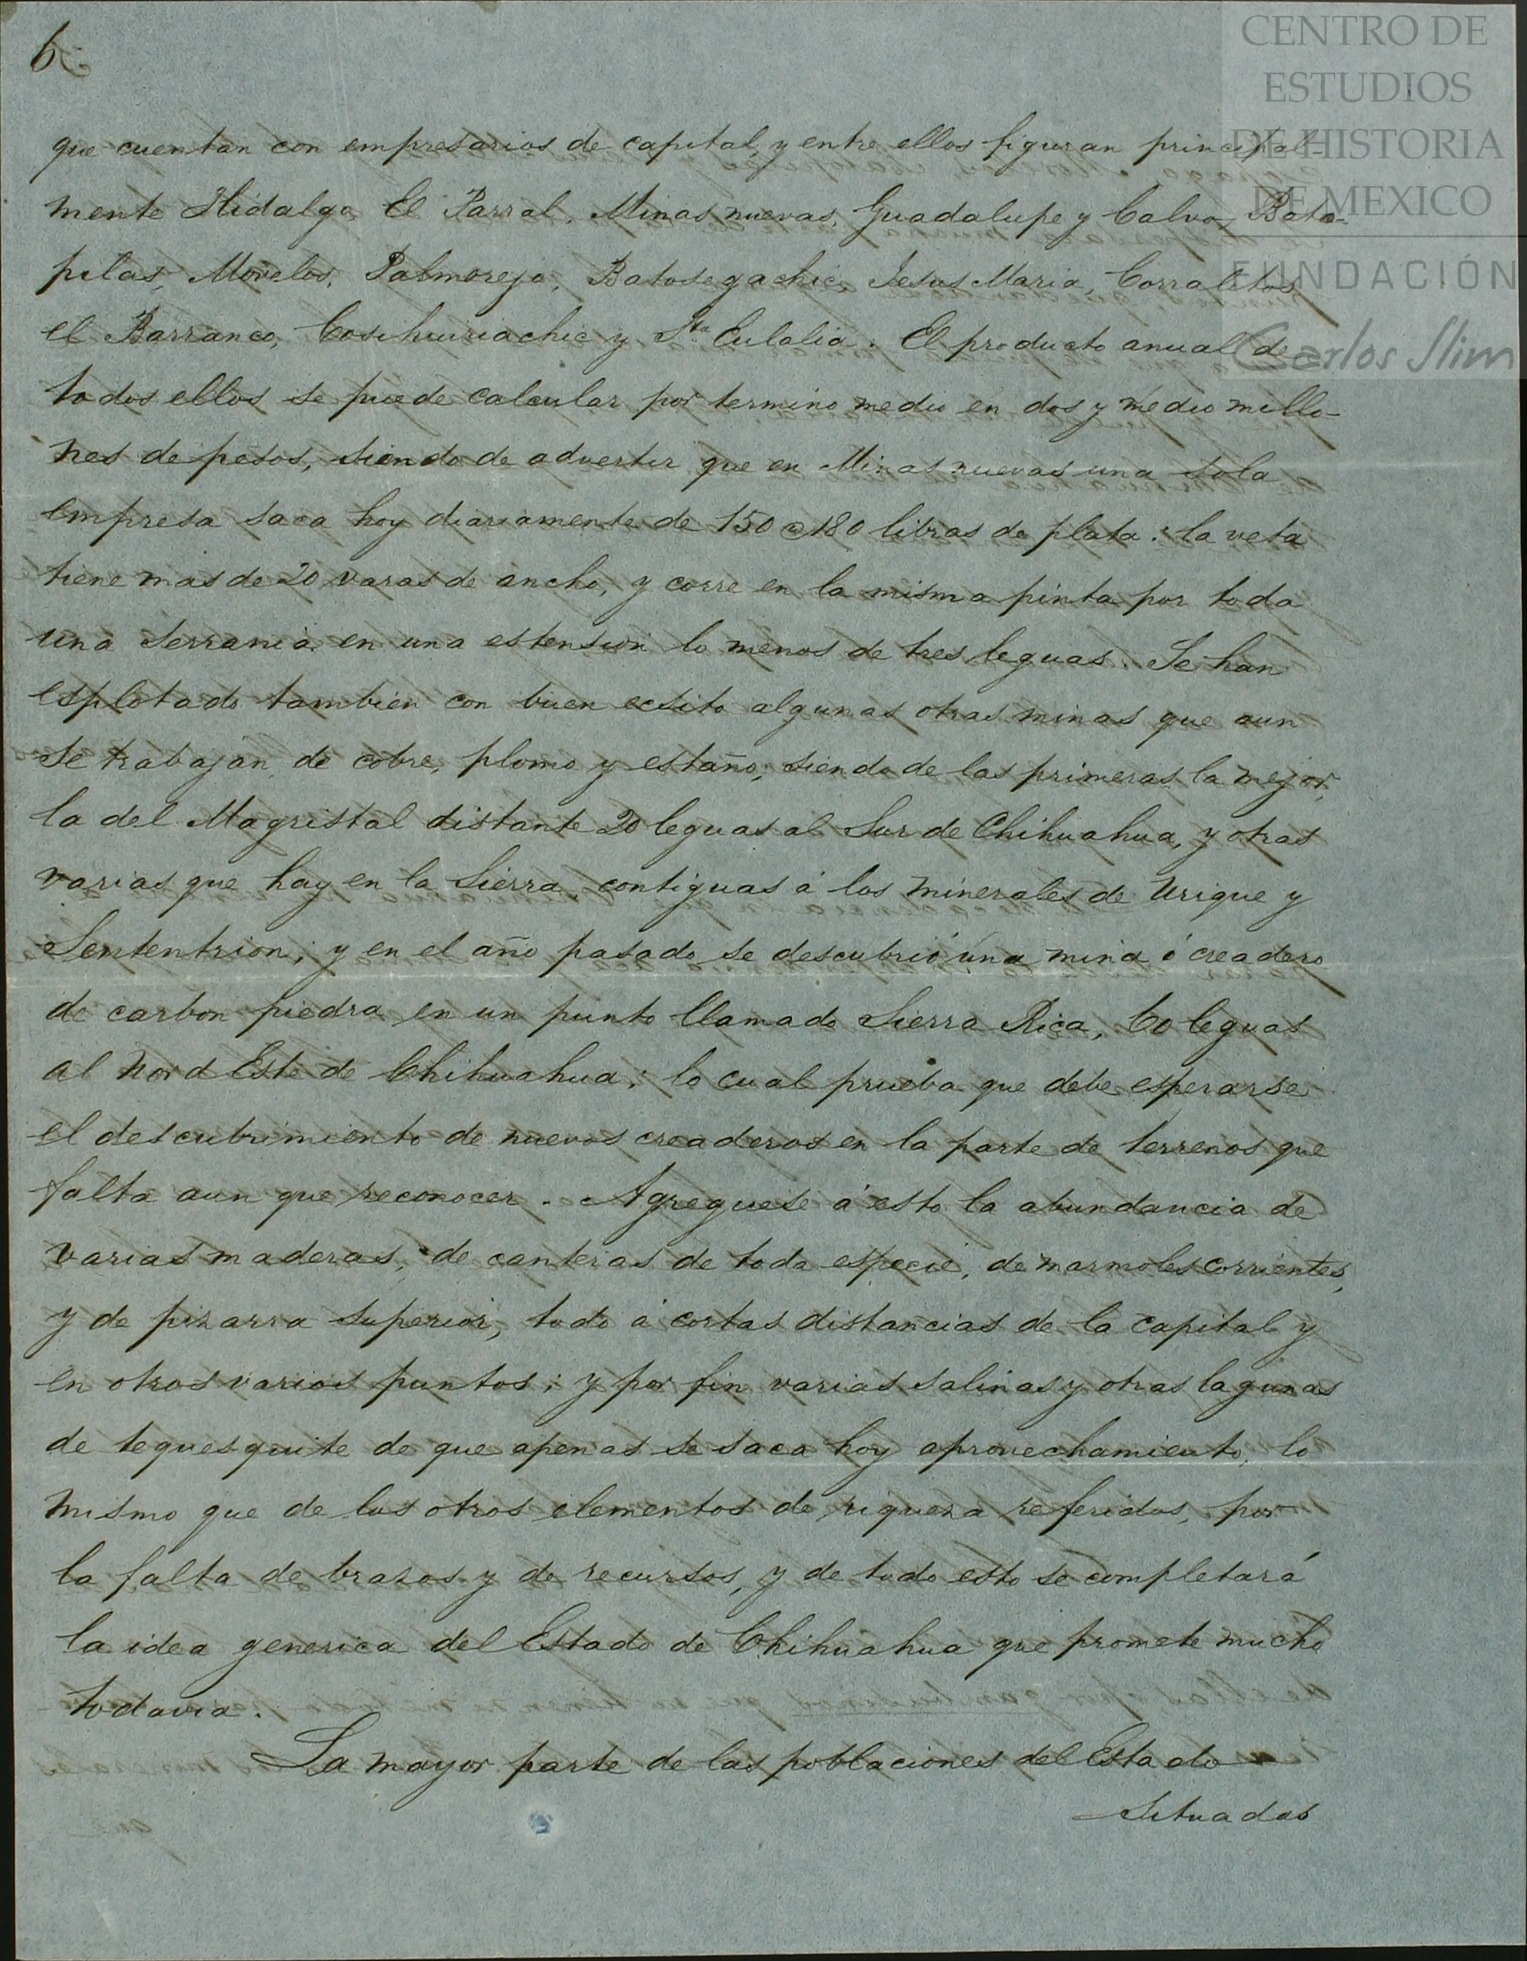 6.
CENTRO DE
ESTUDIOS
DE HISTORIA
DE MEXICO
FUNDACIÓN
Carlos Slim
que cuentan con empresarios de capital, y entre ellos figuran principal-
mente Hidalgo, El Parral, Minas nuevas, Guadalupe y Calvo, Bato-
pilas, Morelos, Palmarejo, Batosegachic, Jesus Maria, Corralitos
el Barranco, Cosihuiriachic y Sta Eulalia. El producto anual de
todos ellos se puede calcular por termino medio en dos y medio millo-
nes de pesos, siendo de advertir que en Minas nuevas una sola
empresa saca hoy diariamente de 150 a 180 libras de plata: la veta
tiene mas de 20 varas de ancho, y corre en la misma pinta por toda
una serrania en una estension lo menos de tres leguas. Se han
esplotado tambien con buen ecsito algunas otras minas que aun
se trabajan, de cobre, plomo y estaño; siendo de las primeras la mejor,
la del Magristal distante 20 leguas al Sur de Chihuahua, y otras
varias que hay en la Sierra contiguas á los minerales de Urique y
Sententrion; y en el año pasado se descubrió una mina ó creadero
de carbon piedra en un punto llamado Sierra Rica, 60 leguas
al Nord Este de Chihuahua; lo cual prueba que debe esperarse
el descubrimiento de nuevos creaderos en la parte de terrenos que
falta aun que reconocer. Agreguese á esto la abundancia de
varias maderas, de canteras de toda especie, de marmoles corrientes,
y de pizarra superior, todo á cortas distancias de la capital y
en otros varios puntos; y por fin varias salinas y otras lagunas
de tequesquite de que apenas se saca hoy aprovechamiento, lo
mismo que de los otros elementos de riqueza referidos, por
la falta de brazos y de recursos, y de todo esto se completará
la idea generica del Estado de Chihuahua que promete mucho
todavia.
La mayor parte de las poblaciones del Estado
situadas